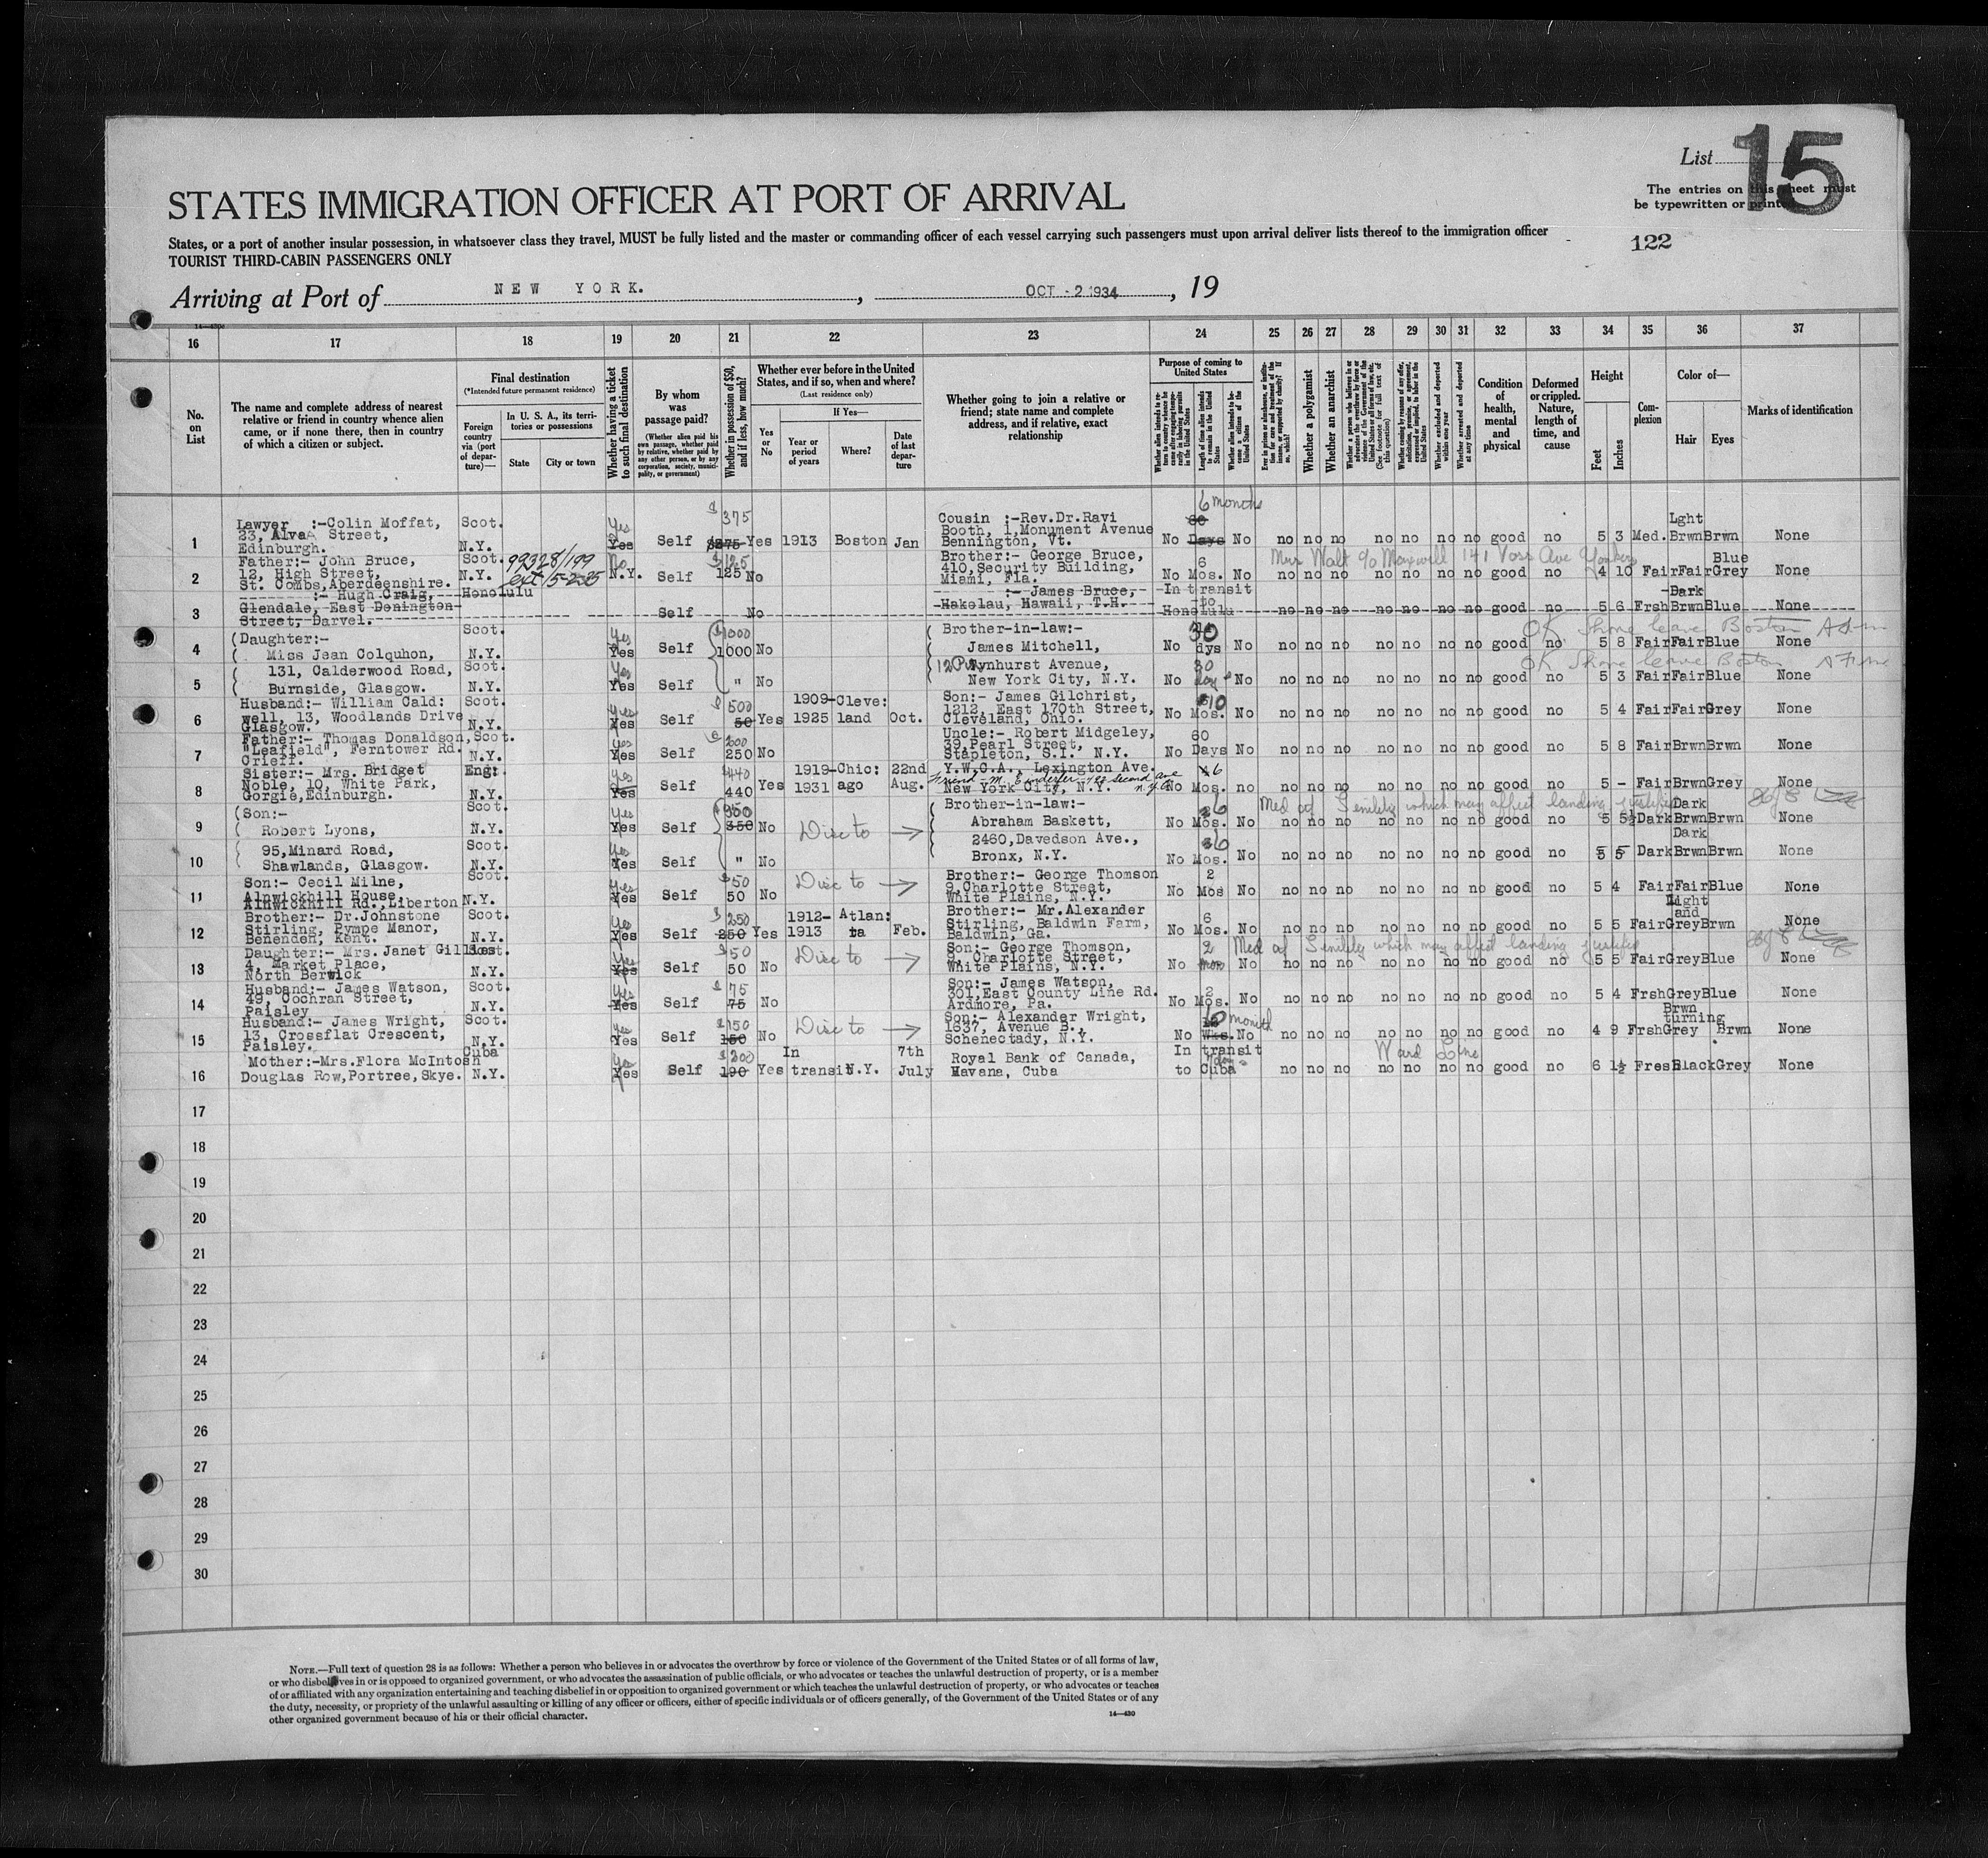 List 15
STATES IMMIGRATION OFFICER AT PORT OF ARRIVAL
The entries on this sheet must
be typewritten or printed
122
States, or a port of another insular possession, in whatsoever class they travel, MUST be fully listed and the master or commanding officer of each vessel carrying such passengers must upon arrival deliver lists thereof to the immigration officer
TOURIST THIRD-CABIN PASSENGERS ONLY
Arriving at Port of NEW YORK. , OCT - 2 1934 , 19
16 17 18 19 20 21 22 23 24 25 26 27 28 29 30 31 32 33 34 35 36 37
No. on List
The name and complete address of nearest relative or friend in country whence alien came, or if none there, then in country of which a citizen or subject.
Final destination
(*Intended future permanent residence)
Foreign country via (port of departure)—
In U. S. A., its territories or possessions
State City or town
Whether having a ticket to such final destination
By whom was passage paid?
(Whether alien paid his own passage, whether paid by relative, whether paid by any other person, or by any corporation, society, municipality, or government)
Whether in possession of $50, and if less, how much?
Whether ever before in the United States, and if so, when and where?
(Last residence only)
Yes or No
If Yes—
Year or period of years
Where?
Date of last departure
Whether going to join a relative or friend; state name and complete address, and if relative, exact relationship
Purpose of coming to United States
Length of time alien intends to remain in the United States
Whether alien intends to become a citizen of the United States
Whether a polygamist
Whether an anarchist
Whether excluded and deported within one year
Whether arrested and deported at any time
Condition of health, mental and physical
Deformed or crippled. Nature, length of time, and cause
Height
Feet Inches
Complexion
Color of—
Hair Eyes
Marks of identification
1 Lawyer :-Colin Moffat, 23, Alva Street, Edinburgh. Scot. N.Y. Yes Yes Self $375 Yes 1913 Boston Jan Cousin :-Rev.Dr.Ravi Booth, 1,Monument Avenue Bennington, Vt. No 6 months Days No no no no no no no no good no 5 3 Med. Lght Brwn Brwn None
2 Father:- John Bruce, 12, High Street, St. Combs,Aberdeenshire. Scot. N.Y. 99328/199 No N.Y. Self 125 No Brother:- George Bruce, 410,Security Building, Miami, Fla. No 6 Mos. No no no no no no no no good no 4 10 Fair Fair Blue Grey None
3 :- Hugh Craig, Glendale, East Donington Street, Darvel. Honolulu Self No :- James Bruce, Hakelau, Hawaii, T.H. In transit to Honolulu no no no no no no no good no 5 6 Frsh Dark Brwn Blue None
4 (Daughter:- Miss Jean Colquhon, Scot. N.Y. Yes Yes Self $1000 1000 No Brother-in-law:- James Mitchell, No 30 dys No no no no no no no no good no 5 8 Fair Fair Blue None
OK Shore leave Boston
5 131, Calderwood Road, Burnside, Glasgow. Scot. N.Y. Yes Yes Self " No Wynhurst Avenue, New York City, N.Y. No 30 day No no no no no no no no good no 5 3 Fair Fair Blue None
OK Shore leave Boston
6 Husband:- William Cald: well, 13, Woodlands Drive Glasgow. Scot. N.Y. Yes Yes Self $500 50 Yes 1909- 1925 Cleve: land Oct. Son:- James Gilchrist, 1212, East 170th Street, Cleveland, Ohio. No 10 Mos. No no no no no no no no good no 5 4 Fair Fair Grey None
7 Father:- Thomas Donaldson, "Leafield", Ferntower Rd. Crieff. Scot. N.Y. Yes Yes Self 250 No Uncle:- Robert Midgeley, 39,Pearl Street, Stapleton, S.I. N.Y. No 60 Days No no no no no no no no good no 5 8 Fair Brwn Brwn None
8 Sister:- Mrs. Bridget Noble, 10, White Park, Gorgie,Edinburgh. Eng: N.Y. Yes Yes Self $440 440 Yes 1919- 1931 Chic: ago 22nd Aug. Y.W.C.A., Lexington Ave. New York City, N.Y. No 6 Mos. no no no no no no no no good no 5 - Fair Brwn Grey None
9 (Son:- Robert Lyons, Scot. N.Y. Yes Yes Self 350 No Disc to → Brother-in-law:- Abraham Baskett, No 6 Mos. No no no no no no no no good no 5 5½ Dark Dark Brwn Brwn None
Med crf Senility which may affect landing
10 95,Minard Road, Shawlands, Glasgow. Scot. N.Y. Yes Yes Self " No 2460,Davedson Ave., Bronx, N.Y. No 6 Mos. No no no no no no no no good no 5 5 Dark Dark Brwn Brwn None
11 Son:- Cecil Milne, Alnwickhill House, Alnwickhill Rd.,Liberton Scot. N.Y. Yes Yes Self $50 50 No Disc to → Brother:- George Thomson 9,Charlotte Street, White Plains, N.Y. No 2 Mos No no no no no no no no good no 5 4 Fair Fair Blue None
12 Brother:- Dr.Johnstone Stirling, Pympe Manor, Benenden, Kent. Scot. N.Y. Yes Yes Self $250 250 Yes 1912- 1913 Atlan: ta Feb. Brother:- Mr.Alexander Stirling, Baldwin Farm, Baldwin, Ga. No 6 Mos. No no no no no no no no good no 5 5 Fair Light and Grey Brwn None
13 Daughter:- Mrs. Janet Gillies 4, Market Place, North Berwick Scot. N.Y. Yes Yes Self $50 50 No Disc to → Son:- George Thomson, 9, Charlotte Street, White Plains, N.Y. No 2 mos No no no no no no no no good no 5 5 Fair Grey Blue None
Med crf Senility which may affect landing
14 Husband:- James Watson, 49, Cochran Street, Paisley Scot. N.Y. Yes Yes Self $75 75 No Son:- James Watson, 301,East County Line Rd. Ardmore, Pa. No 2 Mos. No no no no no no no no good no 5 4 Frsh Grey Blue None
15 Husband:- James Wright, 13, Crossflat Crescent, Paisley. Scot. N.Y. Yes Yes Self $150 150 No Disc to → Son:- Alexander Wright, 1637, Avenue B., Schenectady, N.Y. No 6 month Wks. No no no no no no no no good no 4 9 Frsh Brwn turning Grey Brwn None
16 Mother:-Mrs.Flora McIntosh Douglas Row,Portree,Skye. Cuba N.Y. Yes Yes Self 190 Yes In transit N.Y. 7th July Royal Bank of Canada, Havana, Cuba In transit to Cuba no no no no no no no good no 6 1½ Fres Black Grey None
Ward Line
17
18
19
20
21
22
23
24
25
26
27
28
29
30
NOTE.—Full text of question 28 is as follows: Whether a person who believes in or advocates the overthrow by force or violence of the Government of the United States or of all forms of law,
or who disbelieves in or is opposed to organized government, or who advocates the assassination of public officials, or who advocates or teaches the unlawful destruction of property, or is a member
of or affiliated with any organization entertaining and teaching disbelief in or opposition to organized government or which teaches the unlawful destruction of property, or who advocates or teaches
the duty, necessity, or propriety of the unlawful assaulting or killing of any officer or officers, either of specific individuals or of officers generally, of the Government of the United States or of any
other organized government because of his or their official character.
14—430